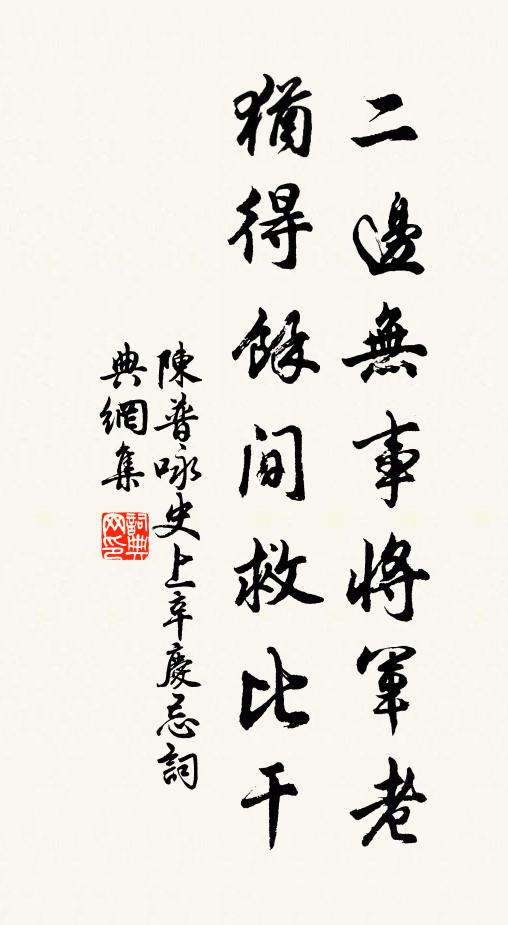 二邊無事將軍老
猶得餘間救比干
陳普咏史上辛慶忌詞
典網集
詞典
网印